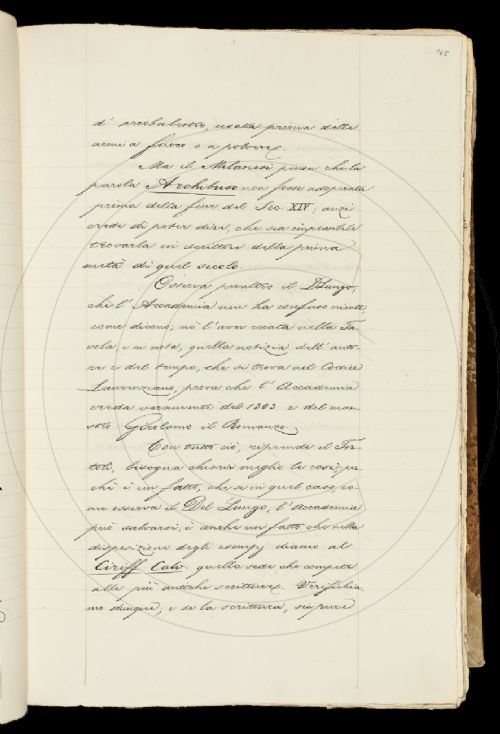 45
d' arcobalestro, usata prima delle
armi a fuoco o a polvere.
Ma il Milanesi pensa che la
parola Archibuso non fosse adoperata
prima della fine del Sec XIV; anzi
crede di poter dire, che sia impossibile
trovarla in scrittore della prima
metà di quel secolo.
Osserva peraltro il DLungo,
che l' Accademia non ha confuso niente,
come diceva, nè l' aver recata nella Ta-
vola, e in nota, quella notizia dell' auto-
re e del tempo, che si trova nel Codice
Laurenziano, prova che l' Accademia
creda veramente del 1303 e del mae-
stro Girolamo il Romanzo.
Con tutto ciò, riprende il Tor-
toli, bisogna chiarir meglio le cose; per-
chè è un fatto, che se in quel caso, co-
me osserva il Del Lungo, l' Accademia
può salvarsi, è anche un fatto che nella
disposizione degli esempj diamo al
Ciriff. Calv. quella sede che compete
alle più antiche scritture. Verifichia-
mo dunque, e se la scrittura, sia pure